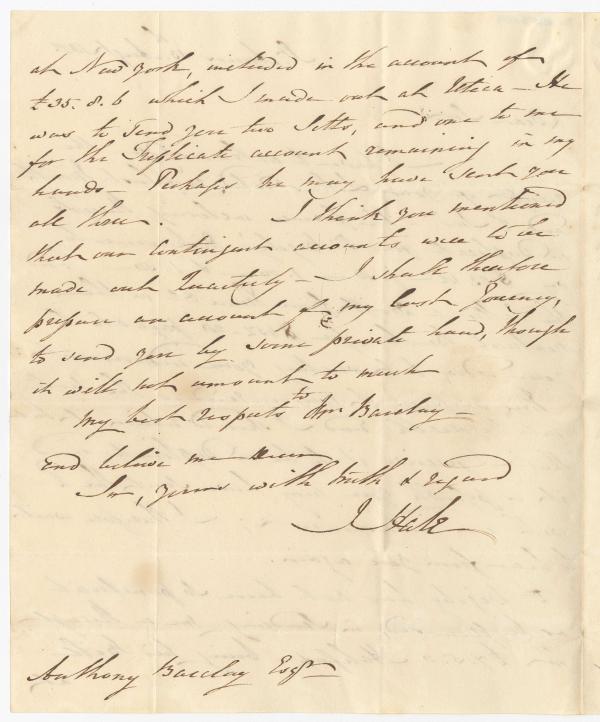 at New York, included in the account of
£35. 8. 6 which I made out at Utica – He
was to send you two Setts, and one to me
for the Triplicate account remaining in my
hands – Perhaps he may have sent you
all three. I think you mentioned
that our Contingent accounts were to be
made out Quarterly – I shall therefore
prepare an account of my last Journey,
to send you by some private hand, though
it will not amount to much
My best respects to Mr Barclay –
and believe me Dear
Sir, yours with truth & regard
J Hale
Anthony Barclay Esqr